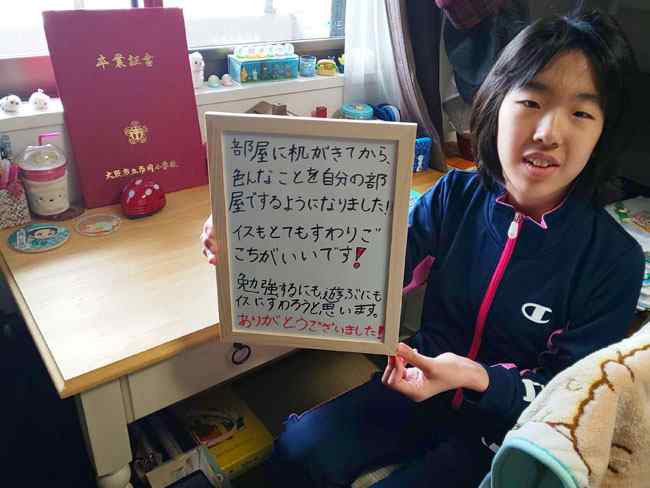 卒業証書
大阪市立
小学校
部屋に机がきてから、
色んなことを自分の部
屋でするようになりました!
イスもとてもすわりご
こちがいいです!
勉強するにも遊ぶにも
イスにすわろうと思います。
ありがとうございました!
Champion